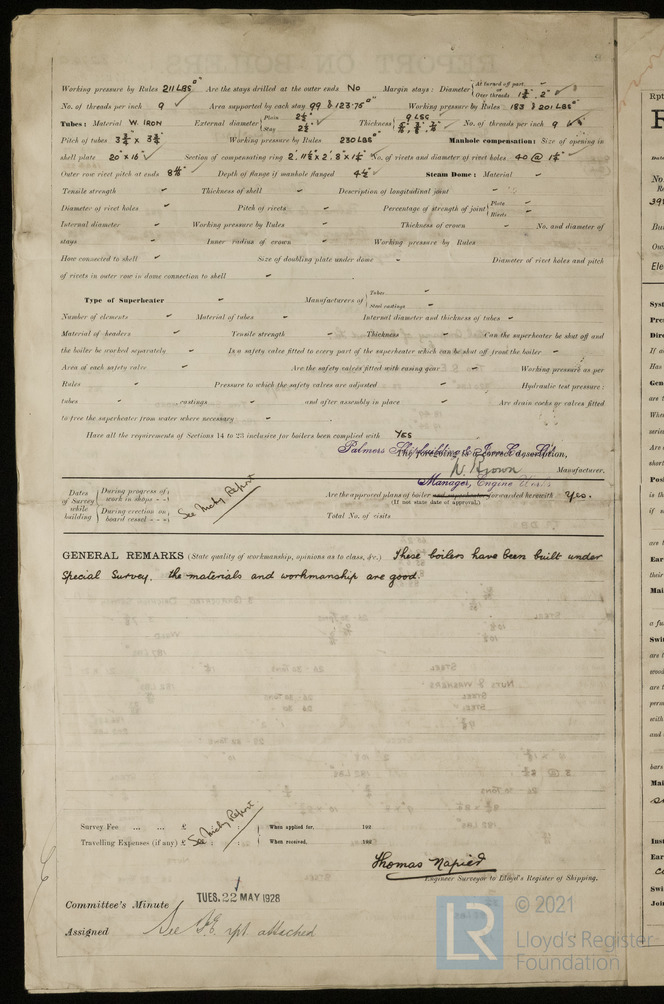 Working pressure by Rules 211 LBS □" Are the stays drilled at the outer ends No Margin stays: Diameter { At turned off part, Over threads 1¾", 2"
No. of threads per inch 9 Area supported by each stay 99 & 123.75 □" Working pressure by Rules 183 & 201 LBS □"
Tubes: Material W. IRON External diameter { Plain 2½" Stay 2½" Thickness { 9 LSG No. of threads per inch 9
Pitch of tubes 3¾" x 3¾" Working pressure by Rules 230 LBS □" Manhole compensation: Size of opening in
shell plate 20" x 16" Section of compensating ring No. of rivets and diameter of rivet holes 40 @
Outer row rivet pitch at ends Depth of flange if manhole flanged 4½" Steam Dome: Material -
Tensile strength - Thickness of shell - Description of longitudinal joint -
Diameter of rivet holes - Pitch of rivets - Percentage of strength of joint { Plate - Rivets -
Internal diameter - Working pressure by Rules - Thickness of crown - No. and diameter of
stays - Inner radius of crown - Working pressure by Rules -
How connected to shell - Size of doubling plate under dome - Diameter of rivet holes and pitch
of rivets in outer row in dome connection to shell -
Type of Superheater - Manufacturers of { Tubes - Steel castings -
Number of elements - Material of tubes - Internal diameter and thickness of tubes -
Material of headers - Tensile strength - Thickness - Can the superheater be shut off and
the boiler be worked separately - Is a safety valve fitted to every part of the superheater which can be shut off from the boiler -
Area of each safety valve - Are the safety valves fitted with easing gear - Working pressure as per
Rules - Pressure to which the safety valves are adjusted - Hydraulic test pressure:
tubes - castings - and after assembly in place - Are drain cocks or valves fitted
to free the superheater from water where necessary -
Have all the requirements of Sections 14 to 23 inclusive for boilers been complied with YES
Palmers Shipbuilding & Iron Co. Ltd.
The foregoing is a correct description,
W. Brown Manufacturer.
Manager, Engine Works
Dates of Survey while building { During progress of work in shops - - During erection on board vessel - - - See Mchy Report
Are the approved plans of boiler and superheater forwarded herewith Yes.
(If not state date of approval.)
Total No. of visits
GENERAL REMARKS (State quality of workmanship, opinions as to class, &c.) These boilers have been built under
Special Survey. the materials and workmanship are good.
Survey Fee ... ... £ : : When applied for, 192
Travelling Expenses (if any) £ : : When received, 192
See Mchy Report
Thomas Napier
Engineer Surveyor to Lloyd's Register of Shipping.
Committee's Minute TUES. 22 MAY 1928
Assigned See F.E. rpt. attached
© 2021
Lloyd's Register
Foundation
LR